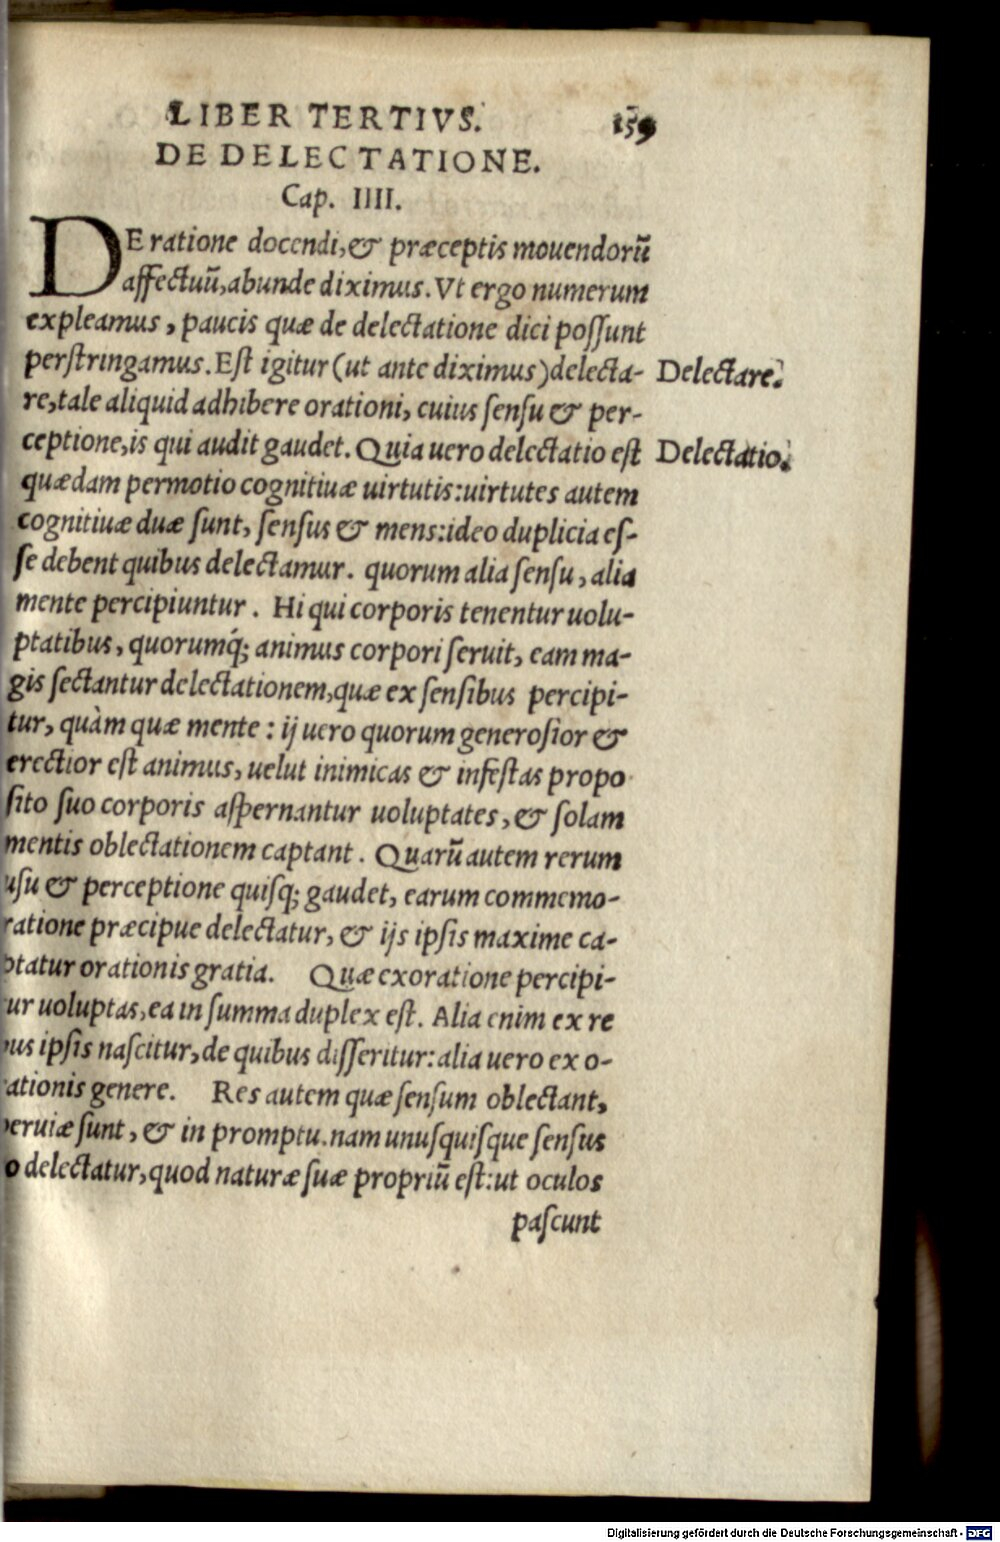 LIBER TERTIVS. 159
DE DELECTATIONE.
Cap. IIII.
DE ratione docendi, & præceptis mouendorū
affectuū, abunde diximus. Vt ergo numerum
expleamus, paucis quæ de delectatione dici possunt
perstringamus. Est igitur (ut ante diximus) delecta- Delectare.
re, tale aliquid adhibere orationi, cuius sensu & per-
ceptione, is qui audit gaudet. Quia uero delectatio est Delectatio.
quædam permotio cognitiuæ uirtutis: uirtutes autem
cognitiuæ duæ sunt, sensus & mens: ideo duplicia es-
se debent quibus delectamur. quorum alia sensu, alia
mente percipiuntur. Hi qui corporis tenentur uolu-
ptatibus, quorumq́; animus corpori seruit, eam ma-
gis sectantur delectationem, quæ ex sensibus percipi-
tur, quàm quæ mente: ij uero quorum generosior &
erectior est animus, uelut inimicas & infestas propo
sito suo corporis aspernantur uoluptates, & solam
mentis oblectationem captant. Quarū autem rerum
usu & perceptione quisq; gaudet, earum commemo-
ratione præcipue delectatur, & ijs ipsis maxime ca-
ptatur orationis gratia. Quæ ex oratione percipi-
tur uoluptas, ea in summa duplex est. Alia enim ex re
bus ipsis nascitur, de quibus disseritur: alia uero ex o-
rationis genere. Res autem quæ sensum oblectant,
peruiæ sunt, & in promptu. nam unusquisque sensus
o delectatur, quod naturæ suæ propriū est: ut oculos
pascunt
Digitalisierung gefördert durch die Deutsche Forschungsgemeinschaft - DFG